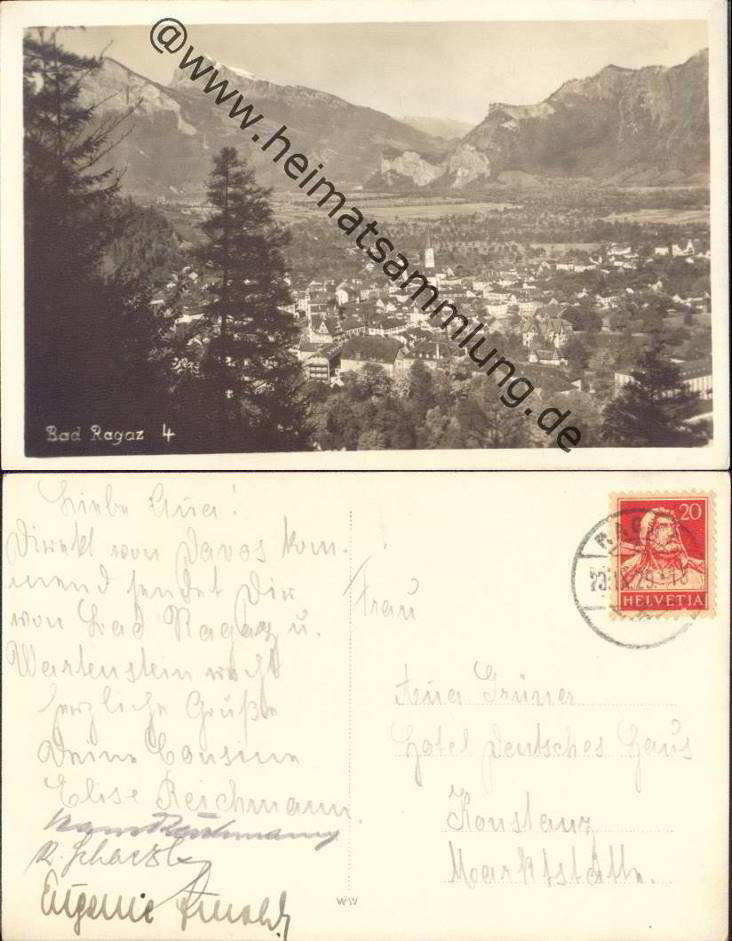 @www.heimatsammlung.de
Bad Ragaz 4
Liebe Anna!
Direkt von Davos kom-
mend sendet Dir
von Bad Ragaz u.
Wartenstein recht
herzliche Grüße
Deine Cousine
Elise Reichmann.
R.
Eugenie Arnold
Frau
Anna Grüner
Hotel Deutsches Haus
Konstanz
Marktstätte.
20
HELVETIA
WW